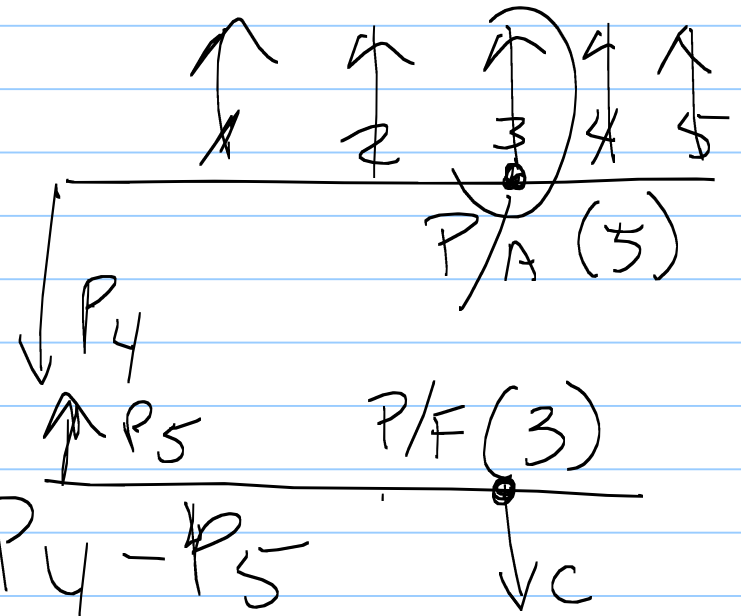 1 2 3 4 5
P/A (5)
P4
P5 P/F (3)
P4 - P5
C